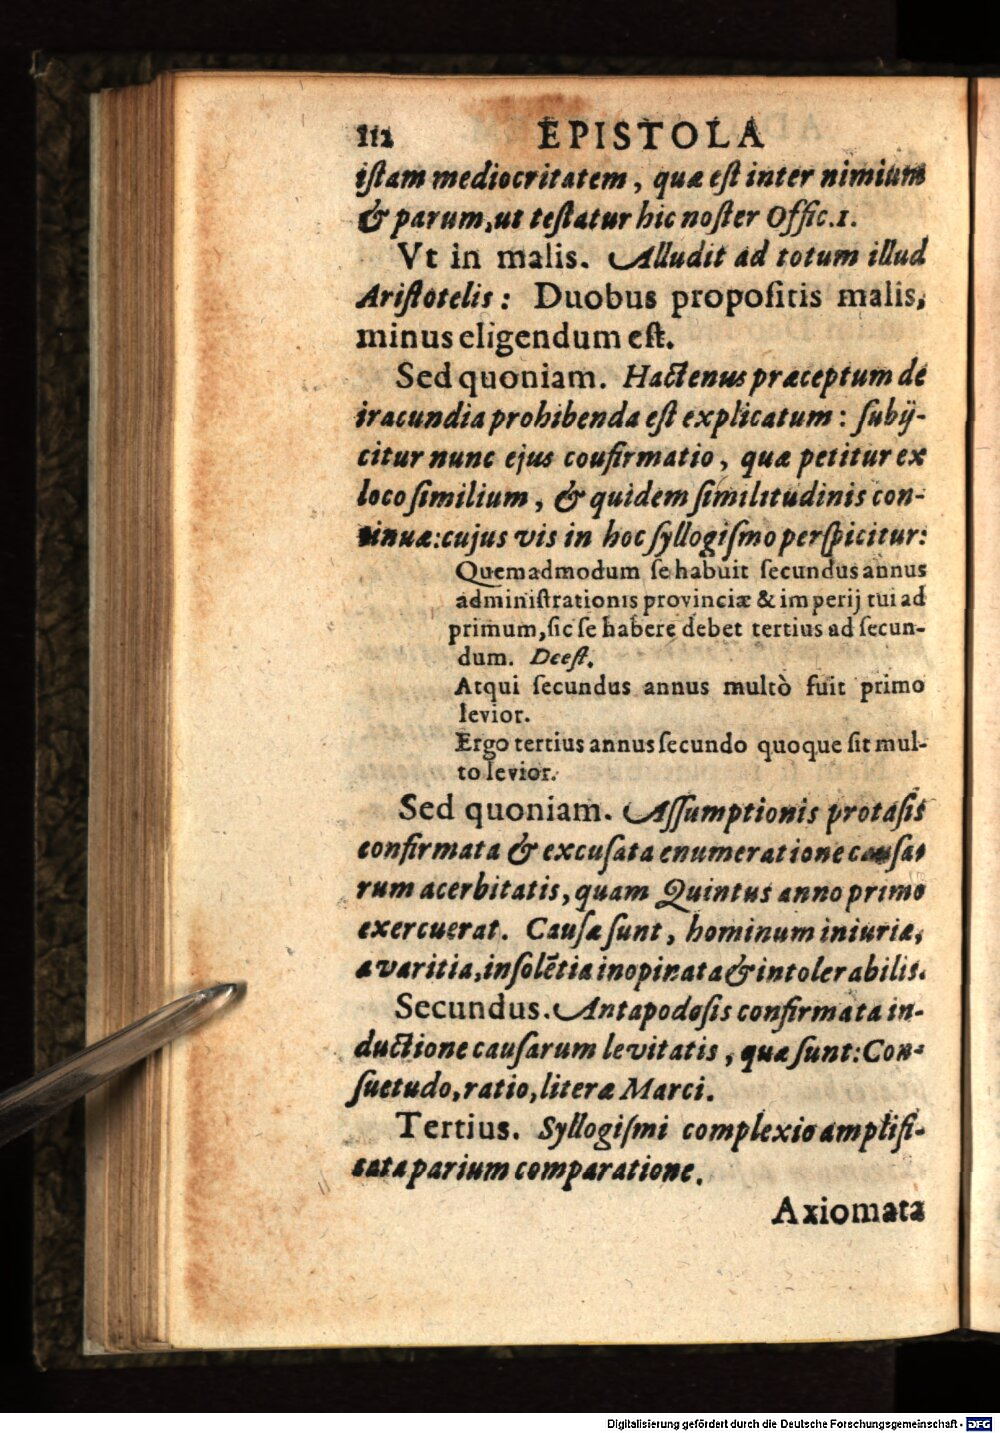 112 EPISTOLA
iſtam mediocritatem, quæ eſt inter nimium
& parum, ut teſtatur hic noſter Offic. 1.
Vt in malis. Alludit ad totum illud
Ariſtotelis: Duobus propoſitis malis,
minus eligendum eſt.
Sed quoniam. Hactenus præceptum de
iracundia prohibenda eſt explicatum: ſubij-
citur nunc ejus coufirmatio, quæ petitur ex
loco ſimilium, & quidem ſimilitudinis con-
tinuæ: cujus vis in hoc ſyllogiſmo perſpicitur:
Quemadmodum ſe habuit ſecundus annus
adminiſtrationis provinciæ & imperij tui ad
primum, ſic ſe habere debet tertius ad ſecun-
dum. Deeſt.
Atqui ſecundus annus multò fuit primo
levior.
Ergo tertius annus ſecundo quoque ſit mul-
to levior.
Sed quoniam. Aſſumptionis protaſis
confirmata & excuſata enumeratione cauſa-
rum acerbitatis, quam Quintus anno primo
exercuerat. Cauſæ ſunt, hominum iniuriæ,
avaritia, inſolẽtia inopinata & intolerabilis.
Secundus. Antapodoſis confirmata in-
ductione cauſarum levitatis, quæ ſunt: Con-
ſuetudo, ratio, literæ Marci.
Tertius. Syllogiſmi complexio amplifi-
cata parium comparatione.
Axiomata
Digitalisierung gefördert durch die Deutsche Forschungsgemeinschaft - DFG